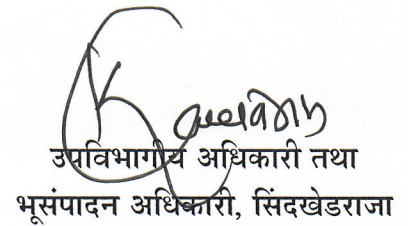 उपविभागीय अधिकारी तथा
भूसंपादन अधिकारी, सिंदखेडराजा